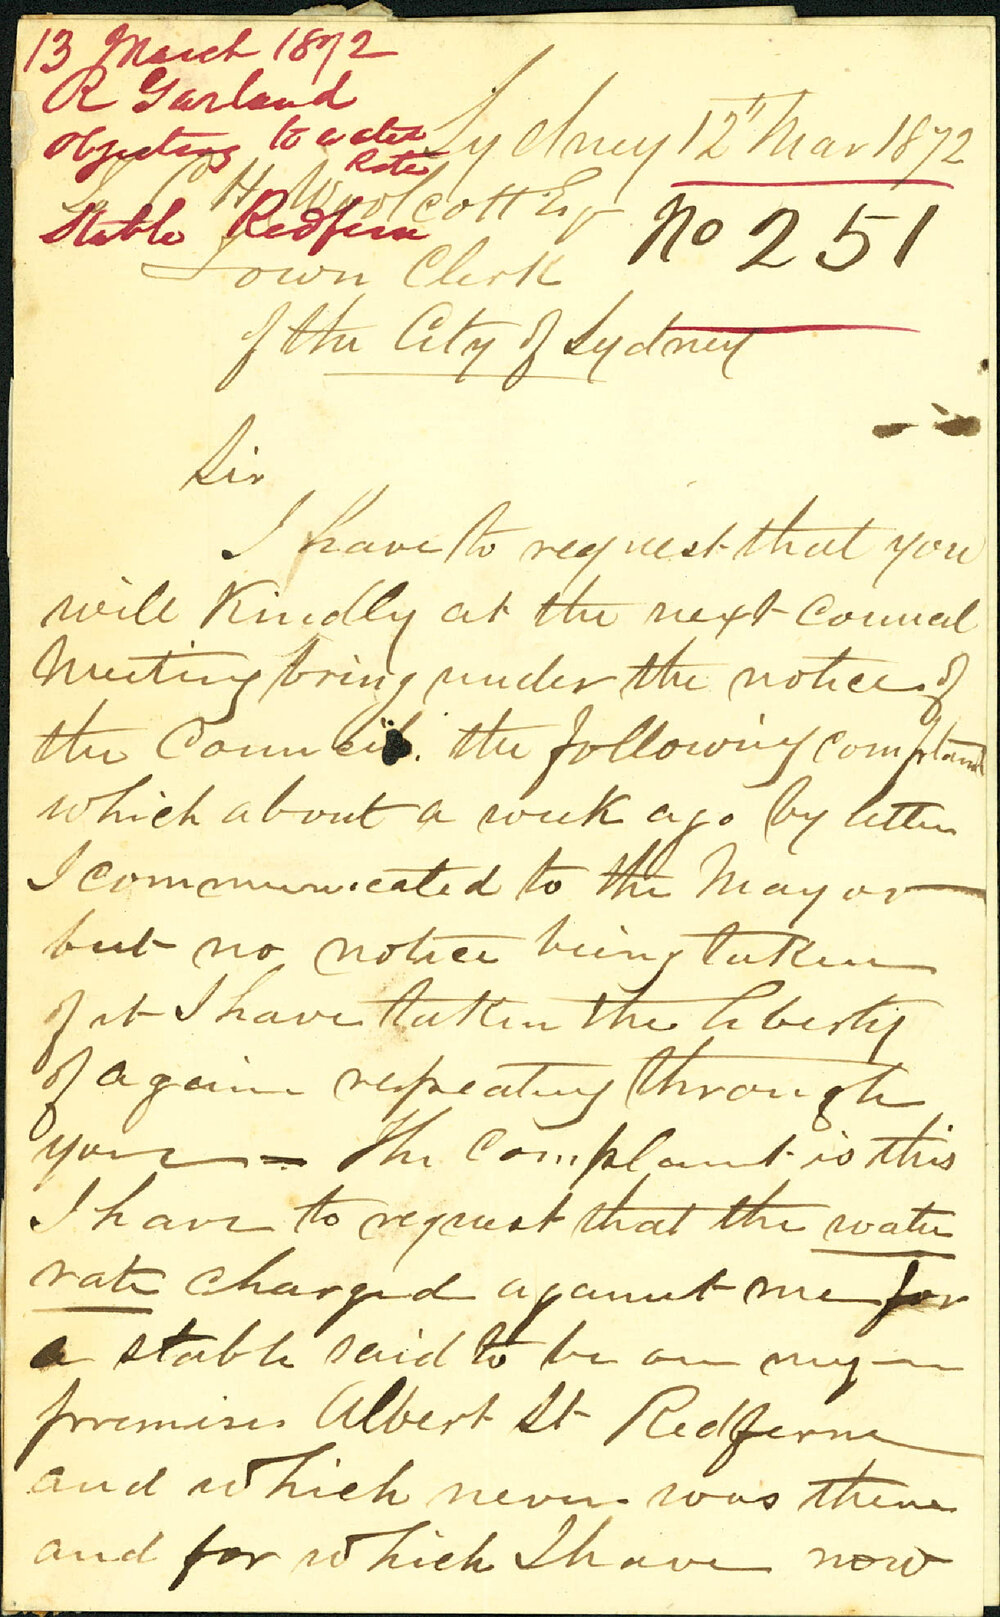 13 March 1872
R Garland
objecting to water
Rate
Stable Redfern
Sydney 12th Mar 1872
No 251
To C H Woolcott Esq
Town Clerk
of the City of Sydney
Sir
I have to request that you
will Kindly at the next Council
Meeting bring under the notice of
the Council. the following complaint
which about a week ago by letter
I communicated to the Mayor
but no notice being taken
of it I have taken the liberty
of again repeating through
you – The Complaint is this
I have to request that the water
rate charged against me for
a stable said to be on my
premises Albert St Redferne
and which never was there
and for which I have now